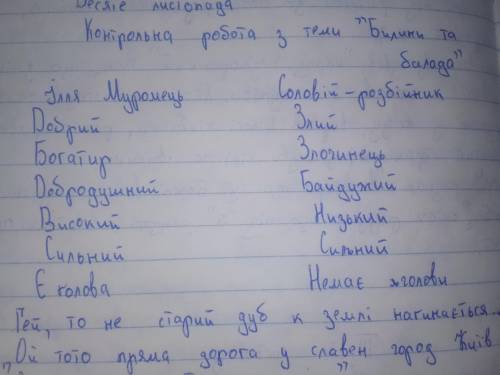 Десяте листопада
Контрольна робота з теми "Билини та
балада"
Ілля Муромець Соловій-розбійник
Добрий Злий
Богатир Злочинець
Добродушний Байдужий
Високий Низький
Сильний Сильний
Є голова Немає голови
Гей, то не старий дуб к землі нагинається...
"Ой тото пряма дорога у славен город Київ